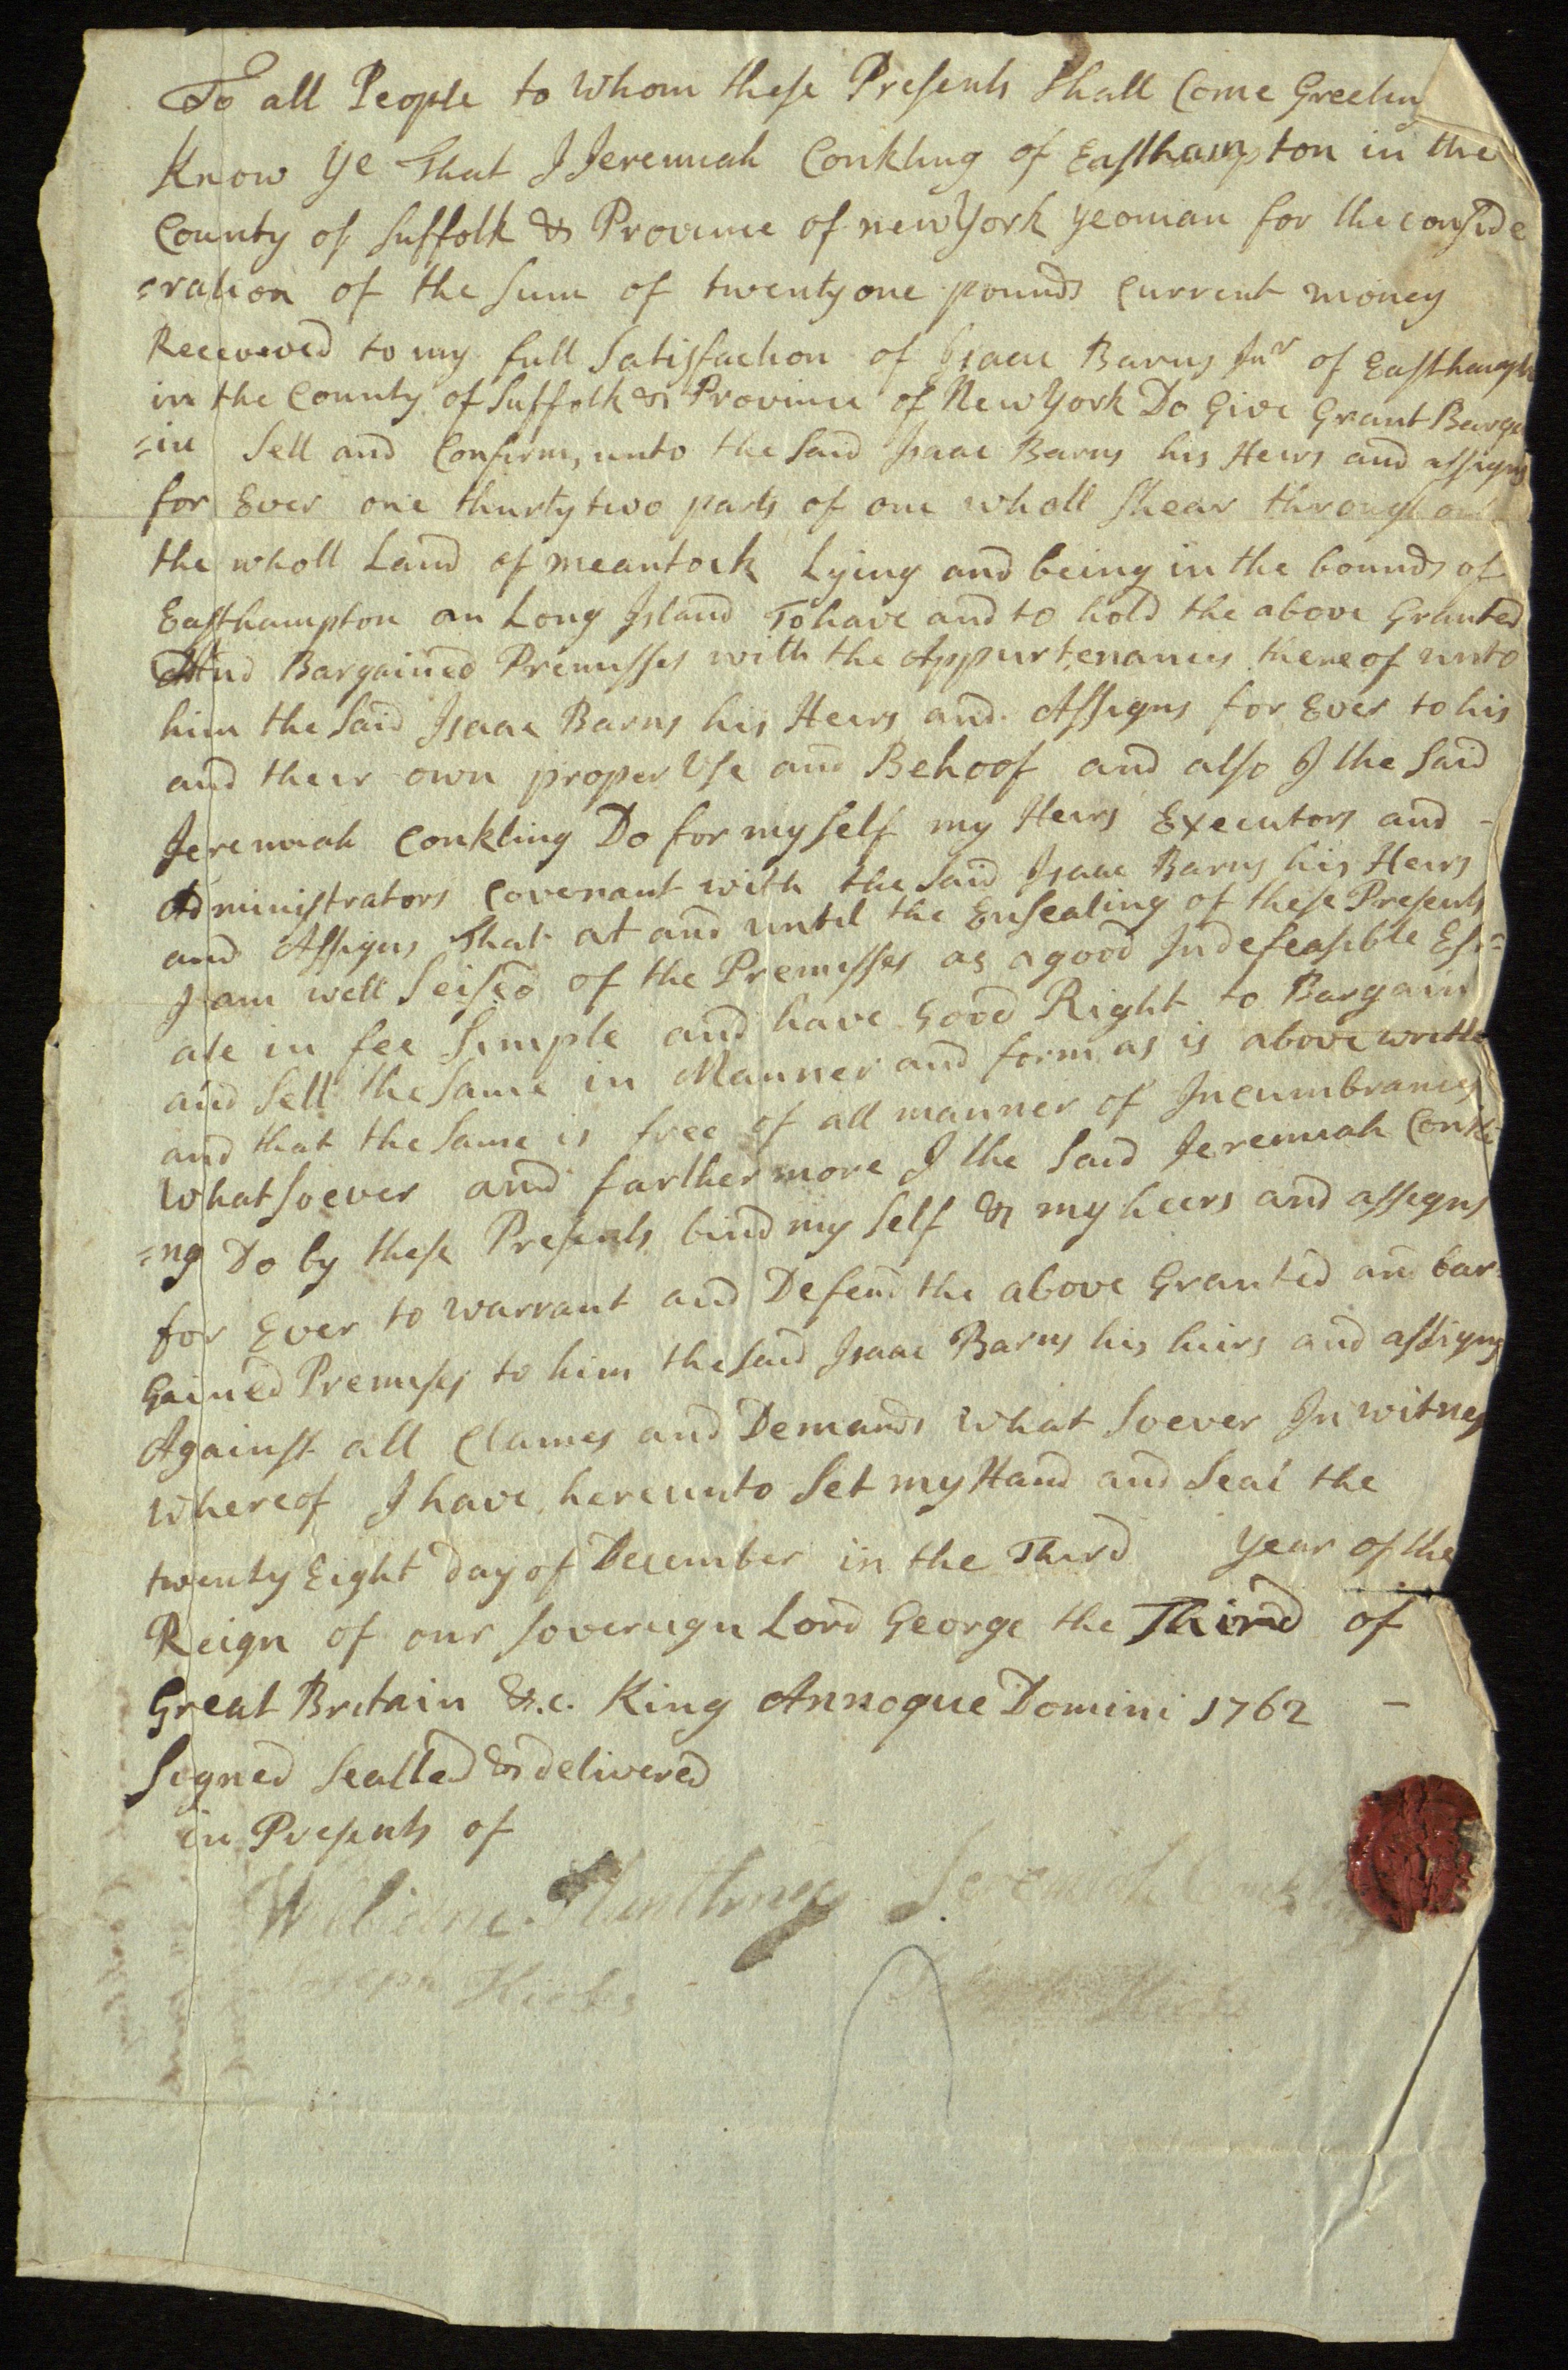 To all People to Whom these Presents Shall Come Greetin
Know Ye That I Jeremiah Conkling of Easthampton in the
County of Suffolk & Province of new York yeoman for the conside
=ration of the Sum of twenty one pounds Current money
Receieved to my full Satisfaction of Isaac Barns Jnr of Easthampt
in the County of Suffolk & Province of New York Do Give Grant Barga
=in Sell and Confirm, unto the Said Isaac Barns his Heirs and assigns
for Ever one thurty two parts of one wholl Shear through out
the wholl Land of meantock Lying and being in the bounds of
Easthampton on Long Island To have and to hold the above Granted
And Bargained Premisses with the Appurtenances thereof unto
him the Said Isaac Barns his Heirs and Assigns for Ever to his
and their own proper Use and Behoof and also I the Said
Jeremiah Conkling Do for my self my Heirs Executors and -
Administrators Covenant with the Said Isaac Barns his Heirs
and Assigns That at and until the Ensealing of these Presents
I am well Seised of the Premisses as a good Indefeasible Est=
ate in fee Simple and have Good Right to Bargain
and Sell the Same in Manner and form as is above writte
and that the Same is free of all manner of Incumbrances
Whatsoever and farther more I the Said Jeremiah Conkli
=ng Do by these Presents bind my Self & my heers and assigns
for Ever to warrant and Defend the above Granted and bar=
Gained Premises to him the Said Isaac Barns his heirs and assigns
Against all Clames and Demands What Soever In witness
Whereof I have hereunto Set my Hand and Seal the
twenty Eight Day of December in the Third Year of the
Reign of our Sovereign Lord George the Third of
Great Britain &.c. King Annoque Domini 1762 -
Signed Sealled & delivered
in Presents of
William Jeremiah
Joseph Hicks